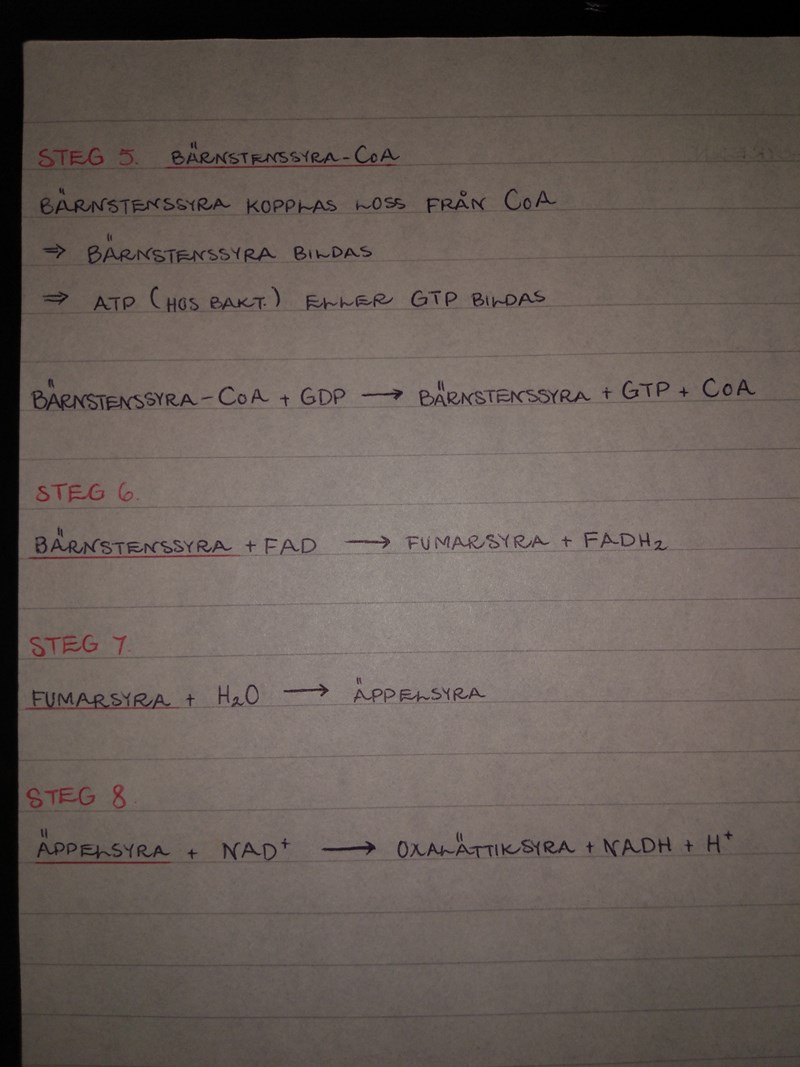 STEG 5. BÄRNSTENSSYRA-CoA
BÄRNSTENSSYRA KOPPLAS LOSS FRÅN CoA
⇒ BÄRNSTENSSYRA BILDAS
⇒ ATP (HOS BAKT.) ELLER GTP BILDAS
BÄRNSTENSSYRA-CoA + GDP → BÄRNSTENSSYRA + GTP + CoA
STEG 6.
BÄRNSTENSSYRA + FAD → FUMARSYRA + FADH₂
STEG 7.
FUMARSYRA + H₂O → ÄPPELSYRA
STEG 8.
ÄPPELSYRA + NAD⁺ → OXALÄTTIKSYRA + NADH + H⁺